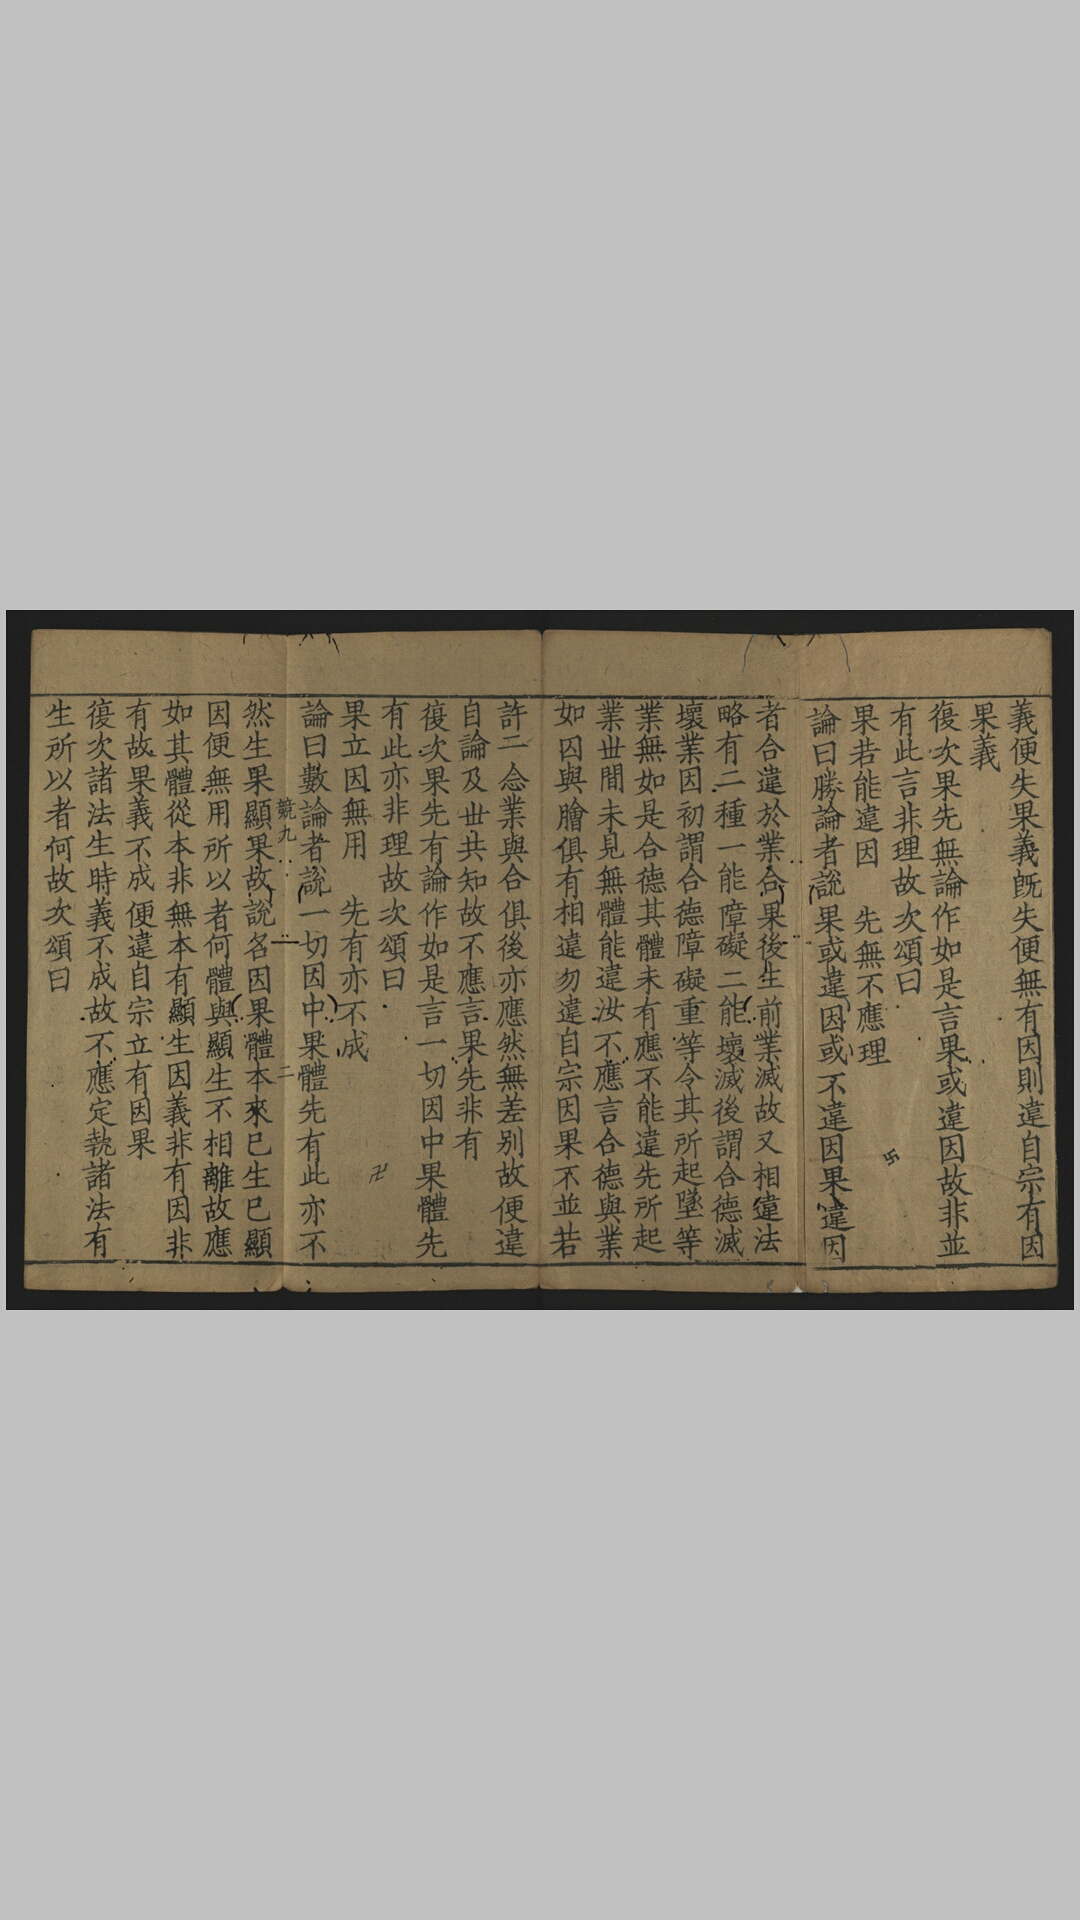 義便失果義旣失便無有因則違自宗有因
果義
復次果先無論作如是言果或違因故非並
有此言非理故次頌曰
果若能違因　先無不應理
論曰勝論者說果或違因或不違因果違因
者合違於業合果後生前業滅故又相違法
略有二種一能障礙二能壞滅後謂合德滅
壞業因初謂合德障礙重等令其所起墜等
業無如是合德其體未有應不能違先所起
業世間未見無體能違汝不應言合德與業
如囚與膾俱有相違勿違自宗因果不並若
許二念業與合俱後亦應然無差別故便違
自論及世共知故不應言果先非有
復次果先有論作如是言一切因中果體先
有此亦非理故次頌曰
果立因無用　先有亦不成
論曰數論者說一切因中果體先有此亦不
競九　二
然生果顯果故說名因果體本來已生已顯
因便無用所以者何體與顯生不相離故應
如其體從本非無本有顯生因義非有因非
有故果義不成便違自宗立有因果
復次諸法生時義不成故不應定執諸法有
生所以者何故次頌曰
卐
卍